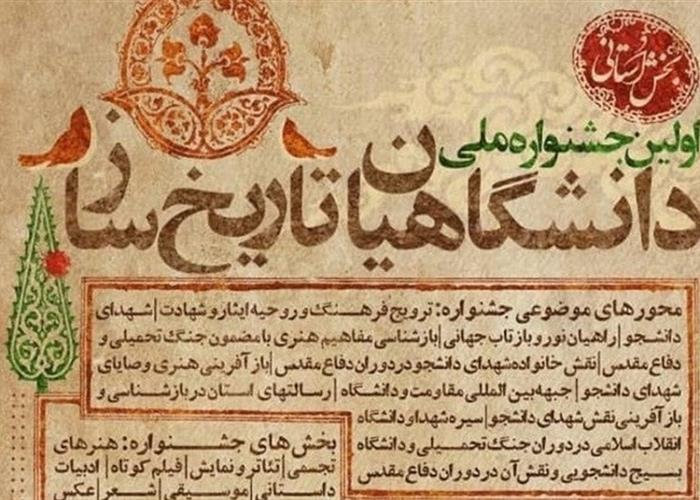 بخش استانی
اولین جشنواره ملی
دانشگاهیان تاریخ ساز
محورهای موضوعی جشنواره: ترویج فرهنگ و روحیه ایثار و شهادت | شهدای
دانشجو | راهیان نور و بازتاب جهانی | بازشناسی مفاهیم هنری با مضمون جنگ تحمیلی و
دفاع مقدس | نقش خانواده شهدای دانشجو در دوران دفاع مقدس | باز آفرینی هنری وصایای
شهدای دانشجو | جبهه بین المللی مقاومت و دانشگاه | رسالتهای استان در بازشناسی و
باز آفرینی نقش شهدای دانشجو | سیره شهدا و دانشگاه
انقلاب اسلامی در دوران جنگ تحمیلی و دانشگاه
بسیج دانشجویی و نقش آن در دوران دفاع مقدس
بخش های جشنواره: هنرهای
تجسمی | تئاتر و نمایش | فیلم کوتاه | ادبیات
داستانی | موسیقی | شعر | عکس